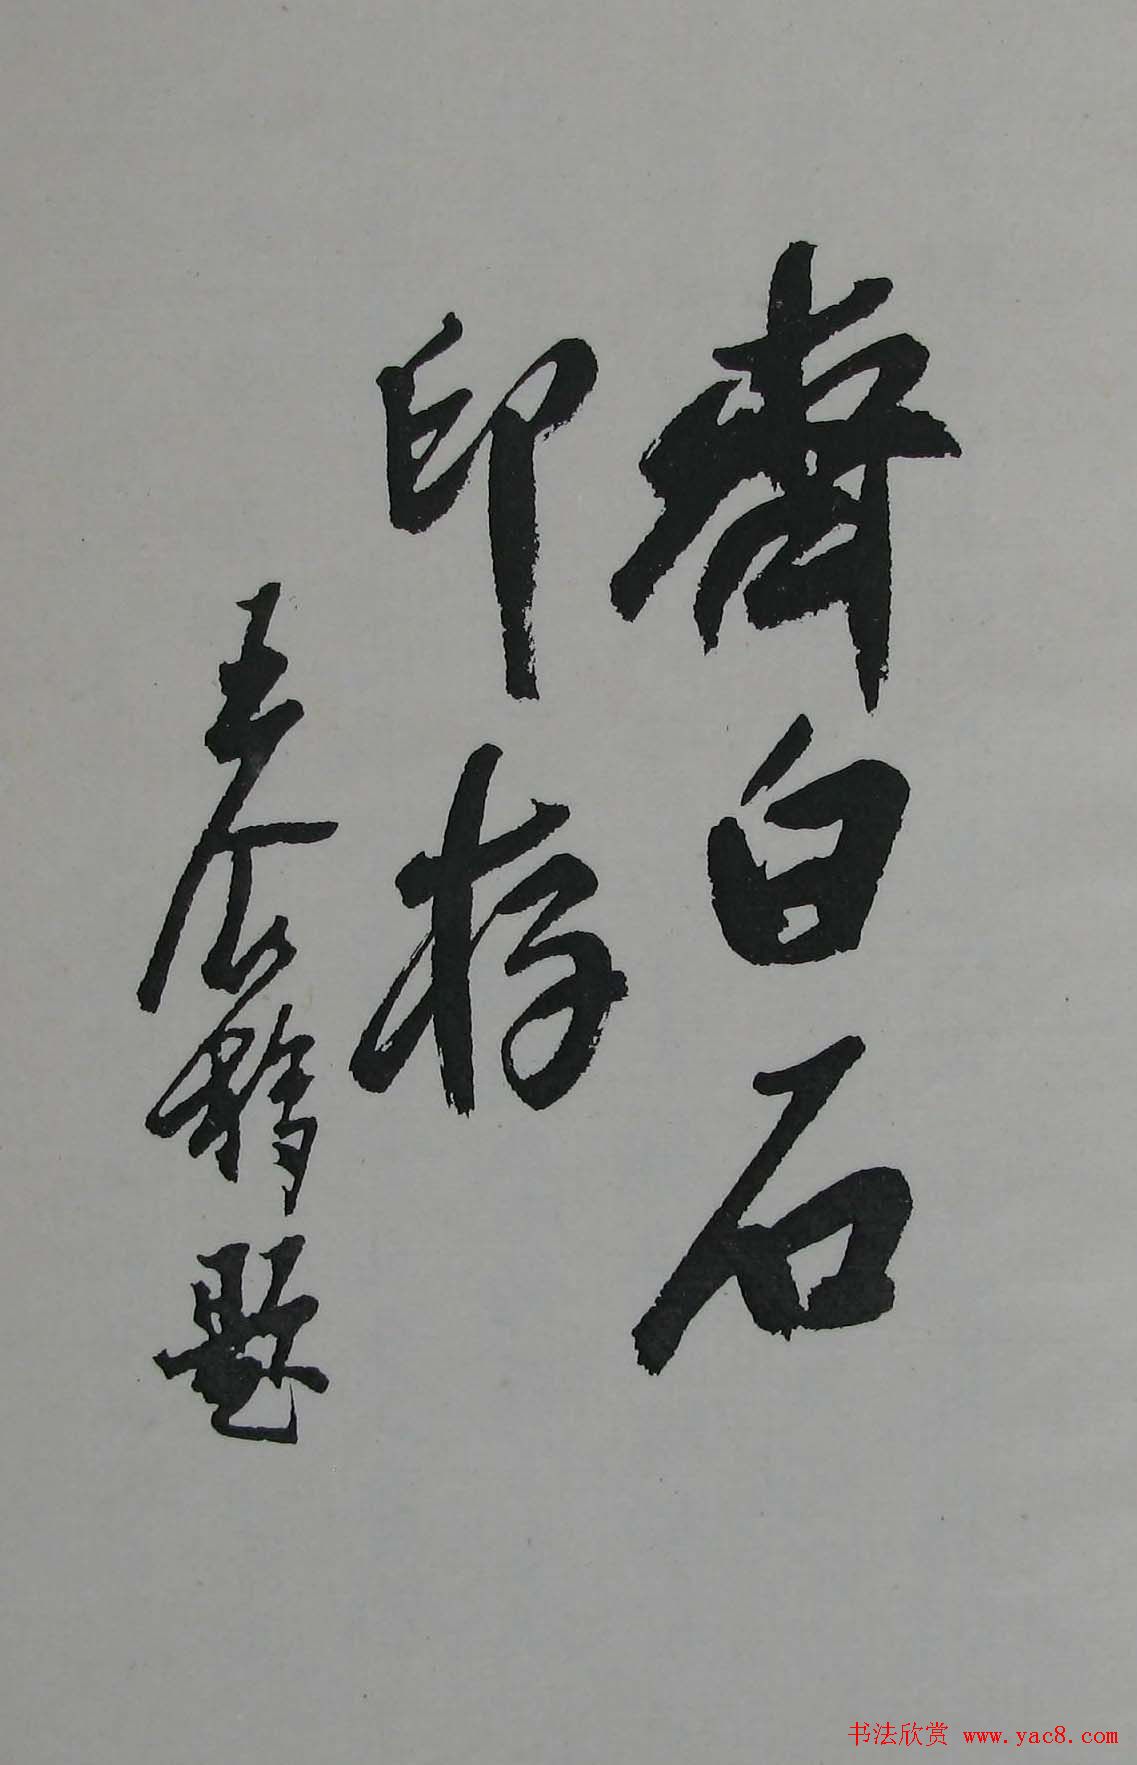 齊白石
印存
王个簃題
书法欣赏 www.yac8.com